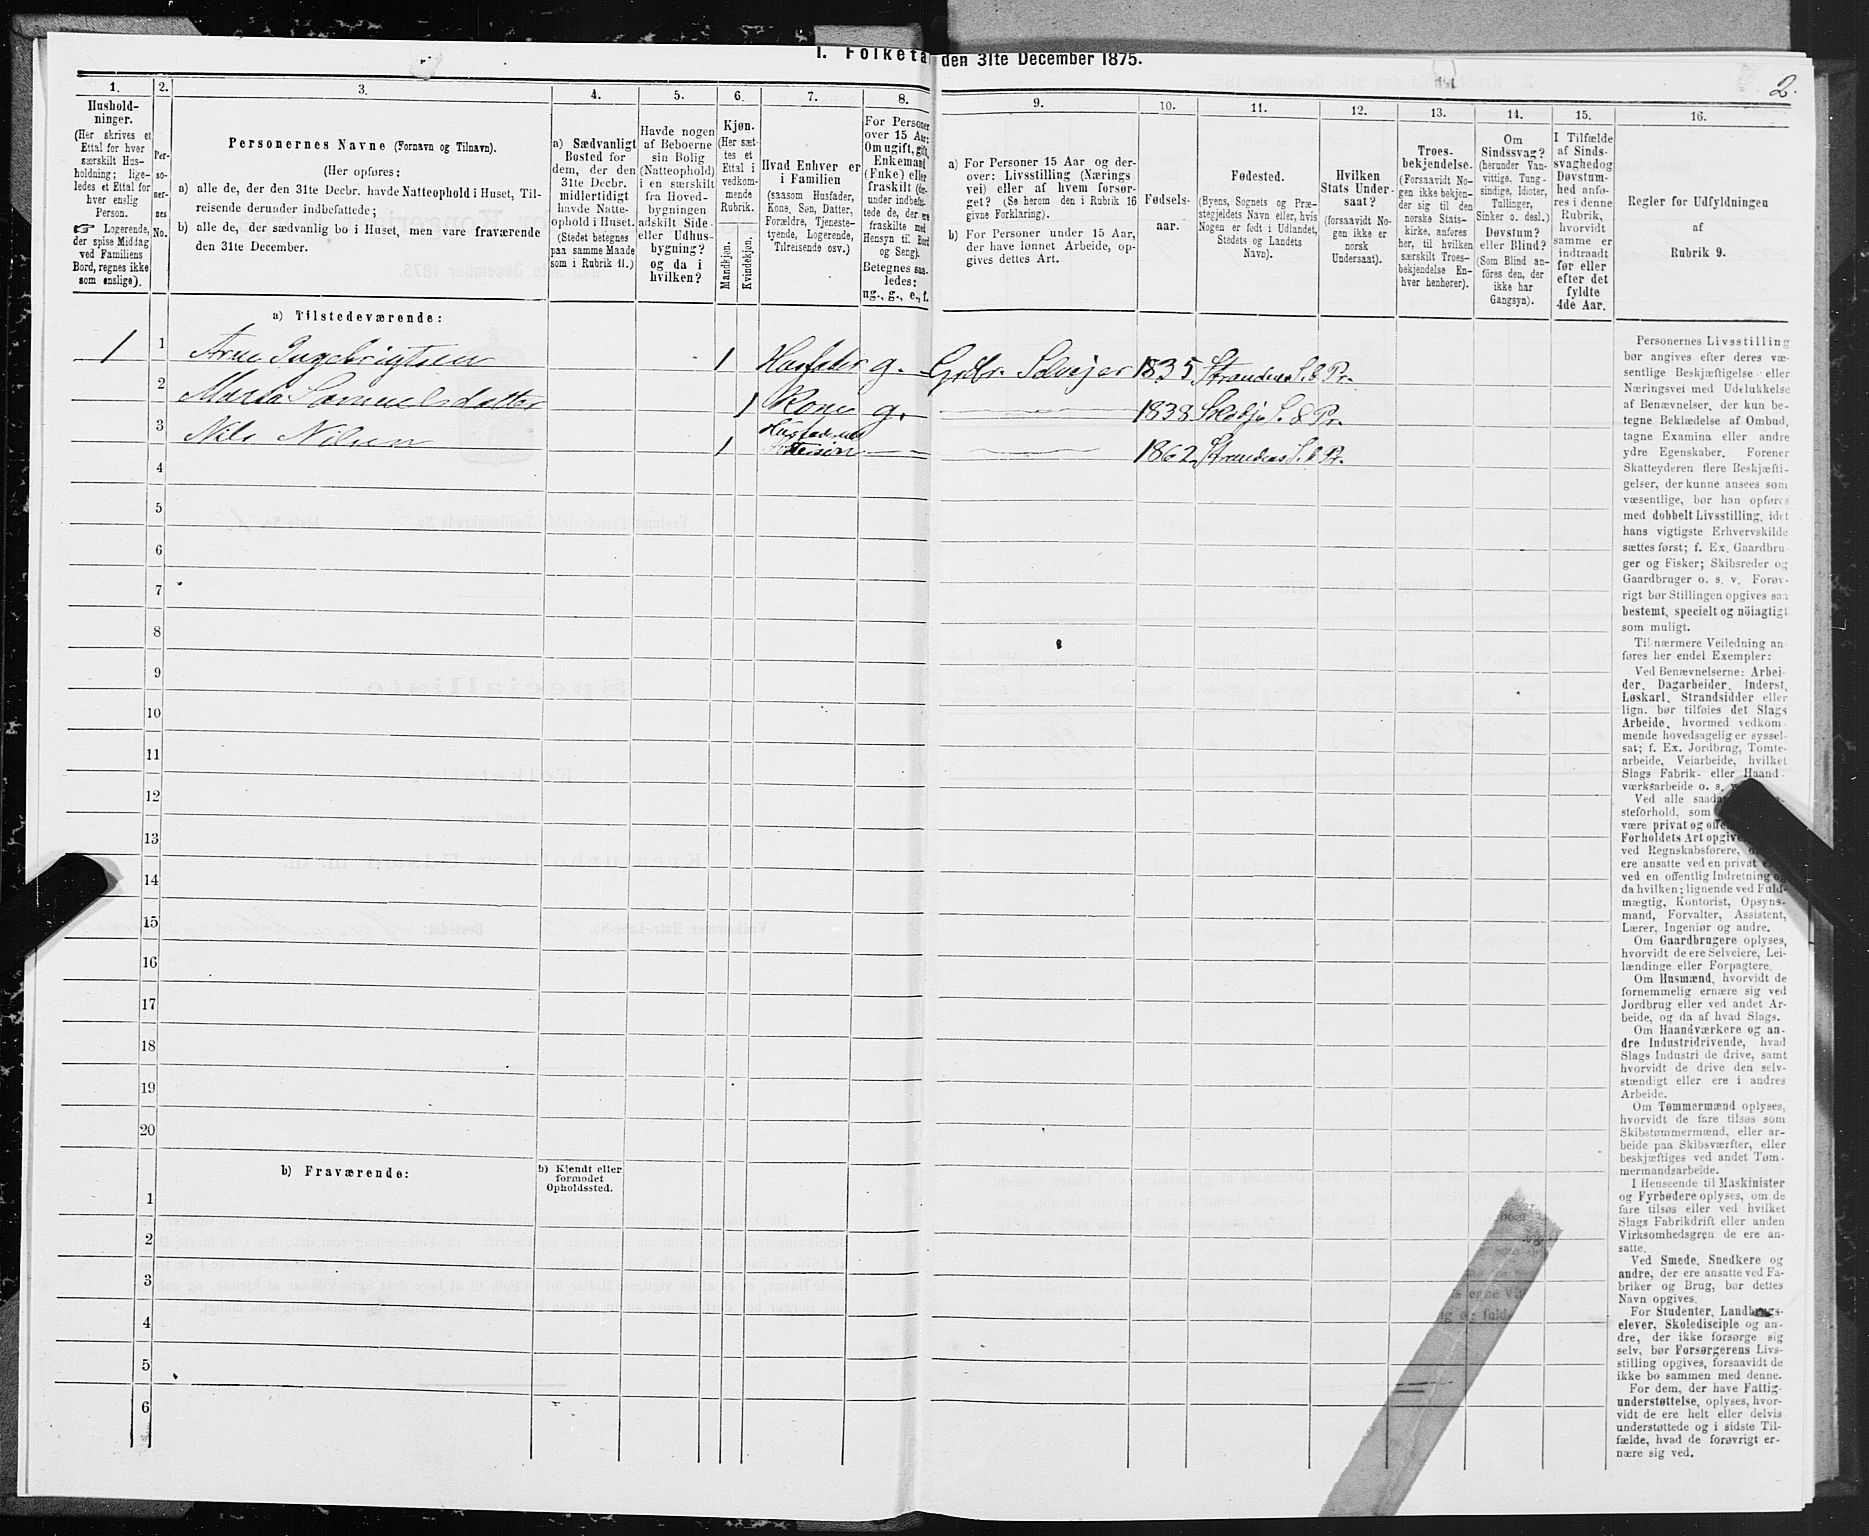 I. Folketa den 31te December 1875.
2.
1.
Hushold-
ninger.
(Her skrives et
Ettal for hver
særskilt Hus-
holdning; lige-
ledes et Ettal for
hver enslig
Person.
☞ Logerende,
der spise Middag
ved Familiens
Bord, regnes ikke
som enslige).
2.
Per-
so-
ner-
nes
No.
3.
Personernes Navne (Fornavn og Tilnavn).
(Her opføres:
a) alle de, der den 31te Decbr. havde Natteophold i Huset, Til-
reisende derunder indbefattede;
b) alle de, der sædvanlig bo i Huset, men vare fraværende
den 31te December.
4.
a) Sædvanligt
Bosted for
dem, der den
31te Decbr.
midlertidigt
havde Natte-
ophold i Huset.
(Stedet betegnes
paa samme Maade
som i Rubrik 11.)
5.
Havde nogen
af Beboerne
sin Bolig
(Natteophold)
i en særskilt
fra Hoved-
bygningen
adskilt Side-
eller Udhus-
bygning?
og da i
hvilken?
6.
Kjøn.
(Her sæt-
tes et
Ettal i
vedkom-
mende
Rubrik.
Mandkjøn.
Kvindekjøn.
7.
Hvad Enhver er
i Familien
(saasom Husfader,
Kone, Søn, Datter,
Forældre, Tjeneste-
tyende, Logerende,
Tilreisende osv.)
8.
For Personer
over 15 Aar:
Om ugift, gift,
Enkemand
(Enke) eller
fraskilt
Betegnes saa-
ledes:
ug., g., e., f.
9.
a) For Personer 15 Aar og der-
over: Livsstilling (Nærings
vei) eller af hvem forsør-
get? (Se herom den i Rubrik 16
givne Forklaring).
b) For Personer under 15 Aar,
der have lønnet Arbeide, op-
gives dettes Art.
10.
Fødsels-
aar.
11.
Fødested.
(Byens, Sognets og Præ-
stegjeldets Navn eller, hvis
Nogen er født i Udlandet,
Stedets og Landets
Navn).
12.
Hvilken
Stats Under-
saat?
(forsaavidt No-
gen ikke er
norsk
Undersaat).
13.
Troes-
bekjendelse.
(Forsaavidt No-
gen ikke bekjen-
der sig til den
norske Stats-
kirke, anføres
her, til hvilken
særskilt Troes-
bekjendelse En-
hver henhører).
14.
Om
Sindssvag?
(herunder Van-
vittige, Tung-
sindige, Idioter,
Tullinger,
Sinker o. desl.)
Døvstum?
eller Blind?
(Som Blind an-
føres den, der
ikke har
Gangsyn).
15.
I Tilfælde
af Sinds-
svaghed og
Døvstum-
hed anfø-
res i denne
Rubrik,
hvorvidt
samme er
indtraadt
før eller
efter det
fyldte
4de Aar.
16.
Regler for Udfyldningen
af
Rubrik 9.
a) Tilstedeværende:
1 1 Arne Ingebrigtsen 1 Husfader g. Grdbr. Selvejer 1835 Strandens S. & Pr.
2 Marta Samuelsdatter 1 Kone g. 1838 S. & Pr.
3 Nils Nilsen 1 1862 Strandens S. & Pr.
4
5
6
7
8
9
10
11
12
13
14
15
16
17
18
19
20
b) Fraværende:
b) Kjendt eller
formodet
Opholdssted.
1
2
3
4
5
6
Personernes Livsstilling
bør angives efter deres væ-
sentlige Beskjæftigelse eller
Næringsvei med Udelukkelse
af Benævnelser, der kun be-
tegne Beklædelse af Ombud,
tagne Examina eller andre
ydre Egenskaber. Forener
Skatteyderen flere Beskjæfti-
gelser, der kunne ansees som
væsentlige, bør han opføres
med dobbelt Livsstilling, idet
hans vigtigste Erhvervskilde
sættes først; f. Ex. Gaardbru-
ger og Fisker; Skibsreder og
Gaardbruger o. s. v. Forøv-
rigt bør Stillingen opgives saa
bestemt, specielt og nöiagtigt
som muligt.
Til nærmere Veiledning an-
føres her endel Exempler:
Ved Benævnelserne: Arbei-
der, Dagarbeider, Inderst,
Løskarl, Strandsidder eller
lign. bør tilføies det Slags
Arbeide, hvormed vedkom-
mende hovedsagelig er syssel-
sat; f. Ex. Jordbrug, Tomte-
arbeide, Veiarbeide, hvilket
Slags Fabrik- eller Haand-
værksarbeide o. s.
Ved alle
steforhold, som
være privat og
Forholdets Art
ved Regnskabsførere,
ere ansatte ved en privat
ved en offentlig Indretning og
da hvilken; lignende ved Fuld-
mægtig, Kontorist, Opsyns-
mand, Forvalter, Assistent,
Lærer, Ingeniør og andre.
Om Gaardbrugere oplyses,
hvorvidt de ere Selveiere, Lei-
lændinge eller Forpagtere.
Om Husmænd, hvorvidt de
fornemmelig ernære sig ved
Jordbrug eller ved andet Ar-
beide, og da af hvad Slags.
Om Haandværkere og an-
dre Industridrivende, hvad
Slags Industri de drive, samt
hvorvidt de drive den selv-
stændigt eller ere i andres
Arbeide.
Om Tømmermænd oplyses,
hvorvidt de fare tilsøs som
Skibstømmermænd, eller ar-
beide paa Skibsværfter, eller
beskjæftiges ved andet Tøm-
mermandsarbeide.
I Henseende til Maskinister
og Fyrbødere oplyses, om de
fare tilsøs eller ved hvilket
Slags Fabrikdrift eller anden
Virksomhedsgren de ere an-
satte.
Ved Smede, Snedkere og
andre, der ere ansatte ved Fa-
briker og Brug, bør dettes
Navn opgives.
For Studenter, Landbrugs-
elever, Skoledisciple og an-
dre, der ikke forsørge sig
selv, bør Forsørgerens Livs-
stilling opgives, forsaavidt de
ikke bo sammen med denne.
For dem, der have Fattig-
understøttelse, oplyses, hvor-
vidt de ere helt eller delvis
understøttede og i sidste Til-
fælde, hvad de forøvrigt er-
nære sig ved.